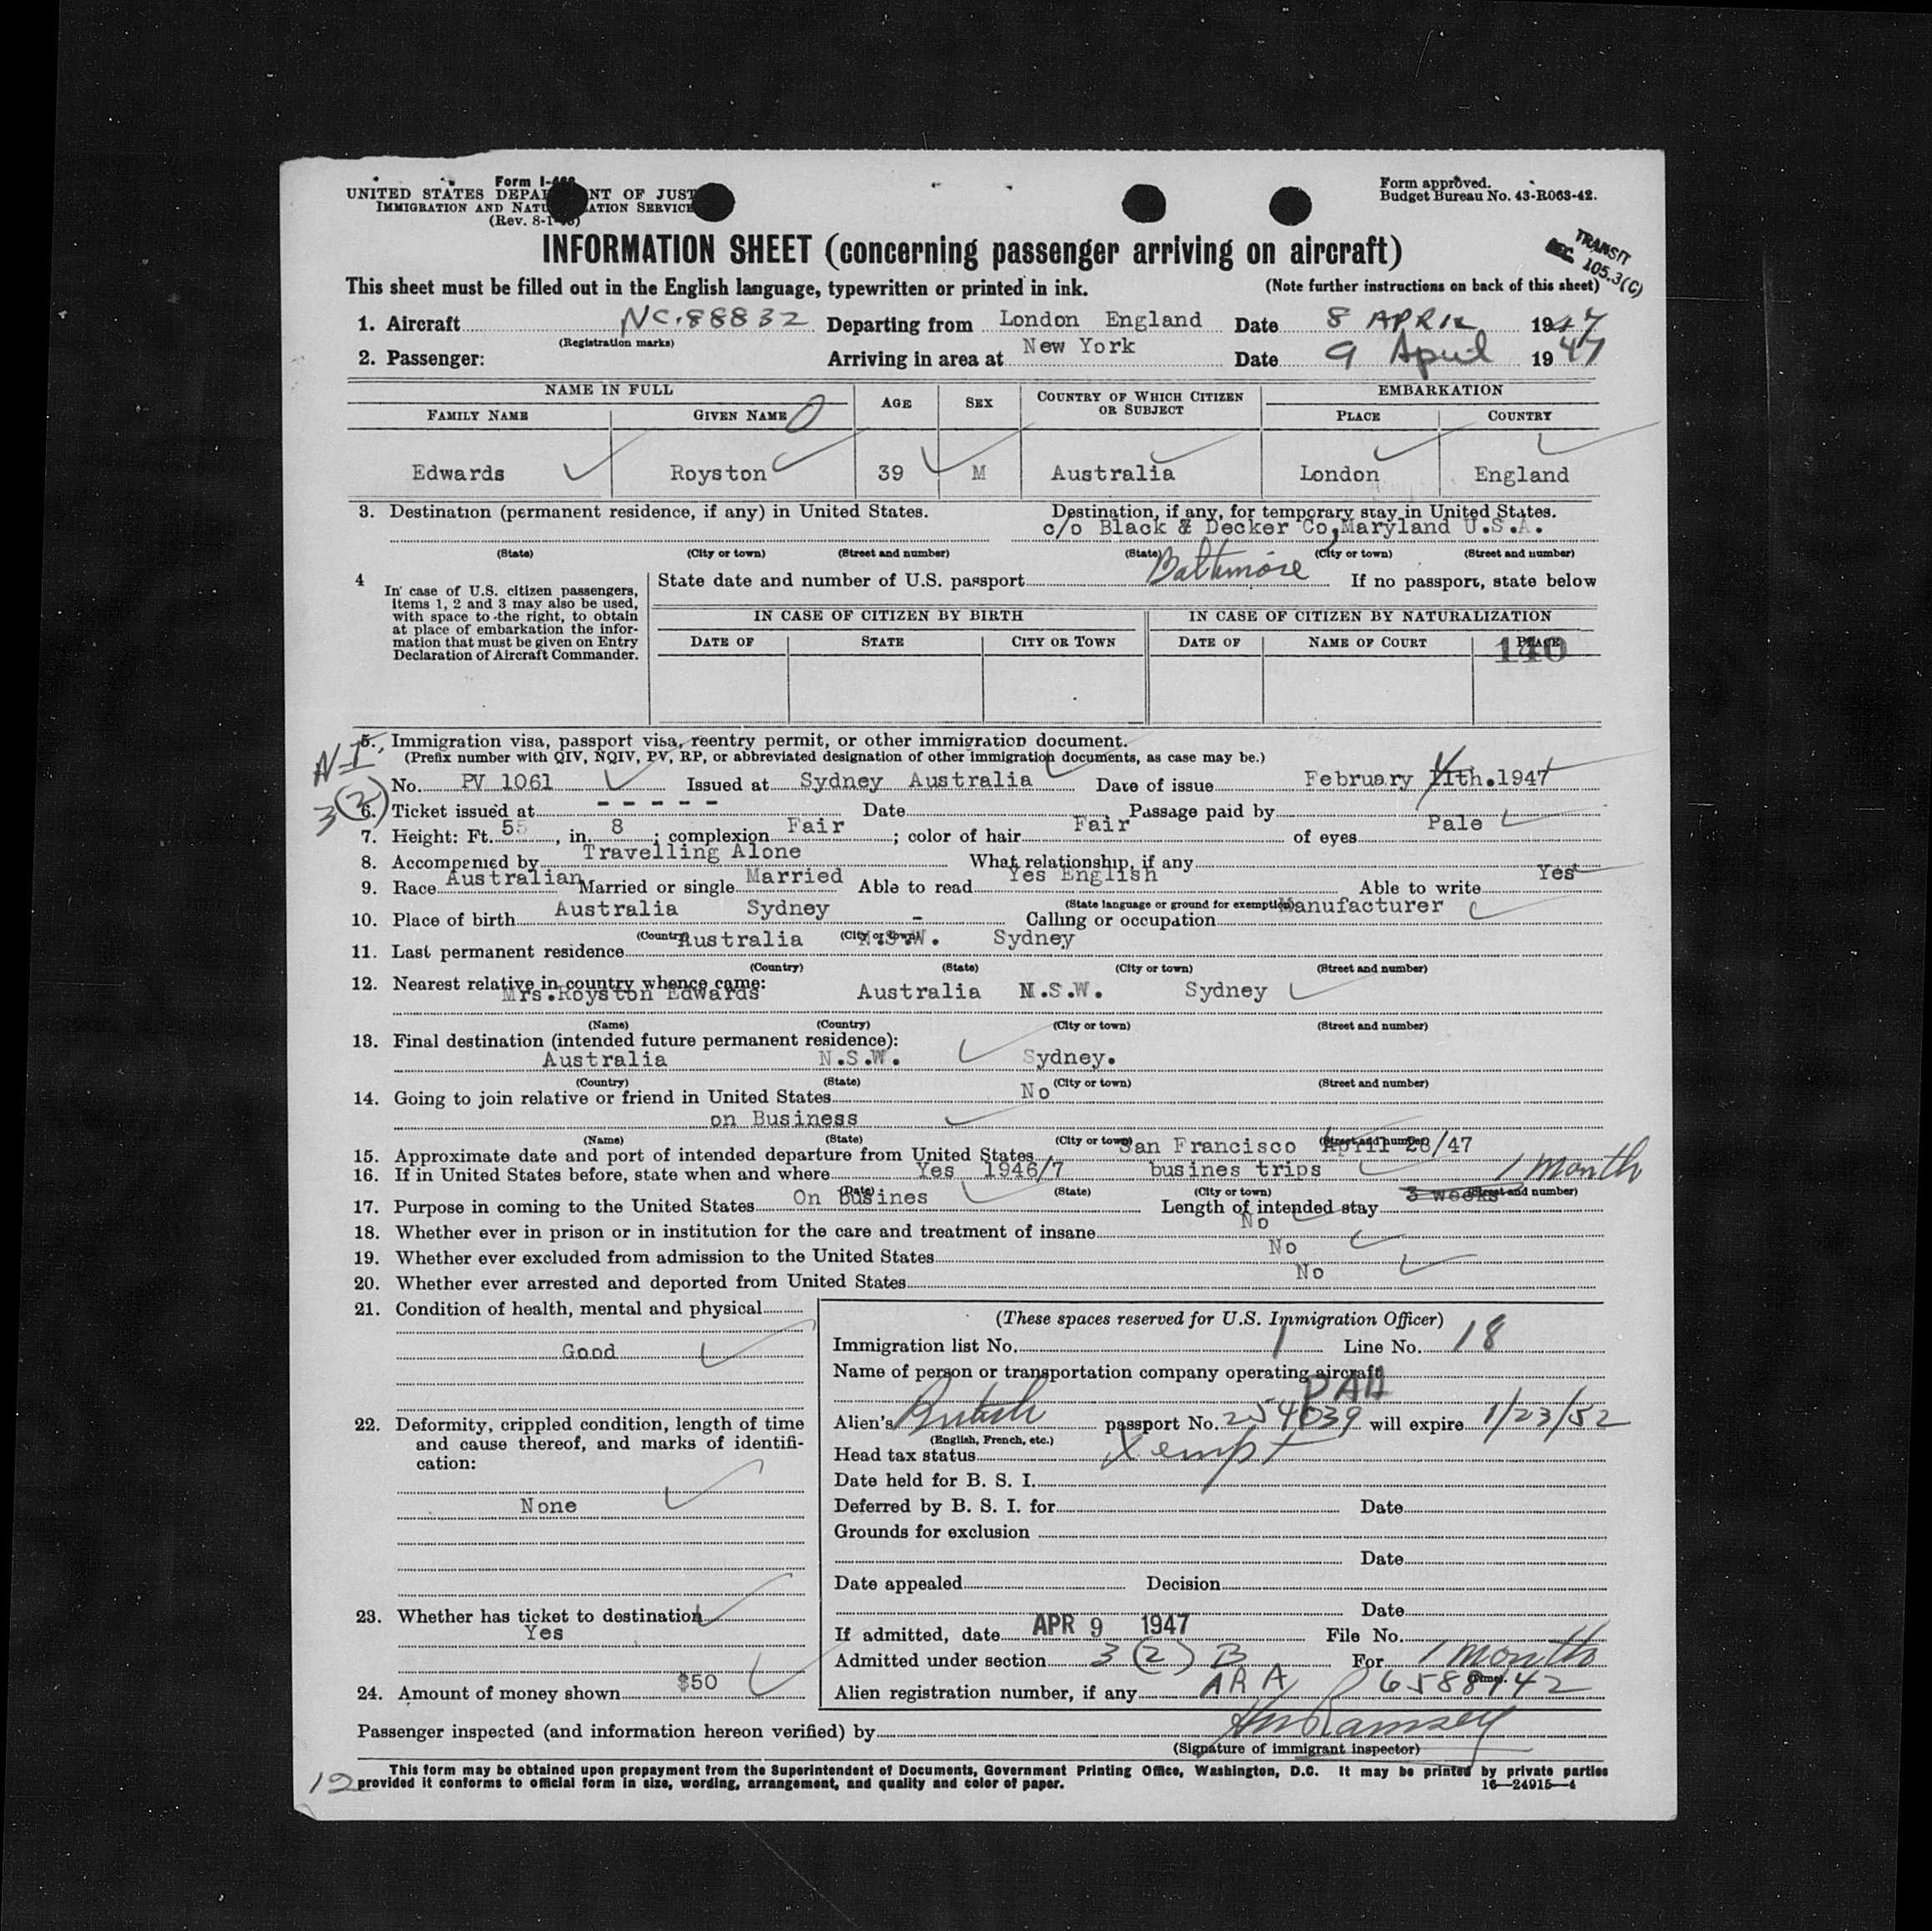 Form I-466
UNITED STATES DEPARTMENT OF JUSTICE
IMMIGRATION AND NATURALIZATION SERVICE
(Rev. 8-1-45)
Form approved.
Budget Bureau No. 43-R063-42.
INFORMATION SHEET (concerning passenger arriving on aircraft)
TRANSIT
SEC 105.3(C)
This sheet must be filled out in the English language, typewritten or printed in ink. (Note further instructions on back of this sheet)
1. Aircraft NC.88832 Departing from London England Date 8 APRIL 1947
(Registration marks)
2. Passenger: Arriving in area at New York Date 9 April 1947
NAME IN FULL AGE SEX COUNTRY OF WHICH CITIZEN OR SUBJECT EMBARKATION
FAMILY NAME GIVEN NAME PLACE COUNTRY
Edwards Royston 39 M Australia London England
3. Destination (permanent residence, if any) in United States. Destination, if any, for temporary stay in United States.
c/o Black & Decker Co, Maryland U.S.A.
(State) (City or town) (Street and number) (State) (City or town) (Street and number)
Baltimore
4 In case of U.S. citizen passengers, items 1, 2 and 3 may also be used, with space to the right, to obtain at place of embarkation the information that must be given on Entry Declaration of Aircraft Commander.
State date and number of U.S. passport If no passport, state below
IN CASE OF CITIZEN BY BIRTH IN CASE OF CITIZEN BY NATURALIZATION
DATE OF STATE CITY OR TOWN DATE OF NAME OF COURT PLACE
140
5. Immigration visa, passport visa, reentry permit, or other immigration document.
(Prefix number with QIV, NQIV, PV, RP, or abbreviated designation of other immigration documents, as case may be.)
N-I
3(2)
No. PV 1061 Issued at Sydney Australia Date of issue February 11th.1947
6. Ticket issued at - - - - - Date Passage paid by
7. Height: Ft. 5 , in. 8 ; complexion Fair ; color of hair Fair of eyes Pale
8. Accompanied by Travelling Alone What relationship, if any
9. Race Australian Married or single Married Able to read Yes English Able to write Yes
(State language or ground for exemption)
10. Place of birth Australia Sydney - Calling or occupation Manufacturer
(Country) (City or town)
11. Last permanent residence Australia N.S.W. Sydney
(Country) (State) (City or town) (Street and number)
12. Nearest relative in country whence came:
Mrs.Royston Edwards Australia N.S.W. Sydney
(Name) (Country) (City or town) (Street and number)
13. Final destination (intended future permanent residence):
Australia N.S.W. Sydney.
(Country) (State) (City or town) (Street and number)
14. Going to join relative or friend in United States No
on Business
(Name) (State) (City or town) (Street and number)
15. Approximate date and port of intended departure from United States San Francisco April 28/47
16. If in United States before, state when and where Yes 1946/7 busines trips
(Date) (State) (City or town) (Street and number)
1 month
17. Purpose in coming to the United States On Busines Length of intended stay 3 weeks
18. Whether ever in prison or in institution for the care and treatment of insane No
19. Whether ever excluded from admission to the United States No
20. Whether ever arrested and deported from United States No
21. Condition of health, mental and physical
Good
22. Deformity, crippled condition, length of time and cause thereof, and marks of identification:
None
23. Whether has ticket to destination
Yes
24. Amount of money shown $50
(These spaces reserved for U.S. Immigration Officer)
Immigration list No. 1 Line No. 18
Name of person or transportation company operating aircraft
PAA
Alien's British passport No. 254039 will expire 1/23/52
(English, French, etc.)
Head tax status Xempt
Date held for B. S. I.
Deferred by B. S. I. for Date
Grounds for exclusion
Date
Date appealed Decision
Date
If admitted, date APR 9 1947 File No.
Admitted under section 3 (2) B For 1 month
(Time)
Alien registration number, if any ARA 6588142
Passenger inspected (and information hereon verified) by HM Ramsey
(Signature of immigrant inspector)
This form may be obtained upon prepayment from the Superintendent of Documents, Government Printing Office, Washington, D.C. It may be printed by private parties
provided it conforms to official form in size, wording, arrangement, and quality and color of paper. 16—24915—4
12